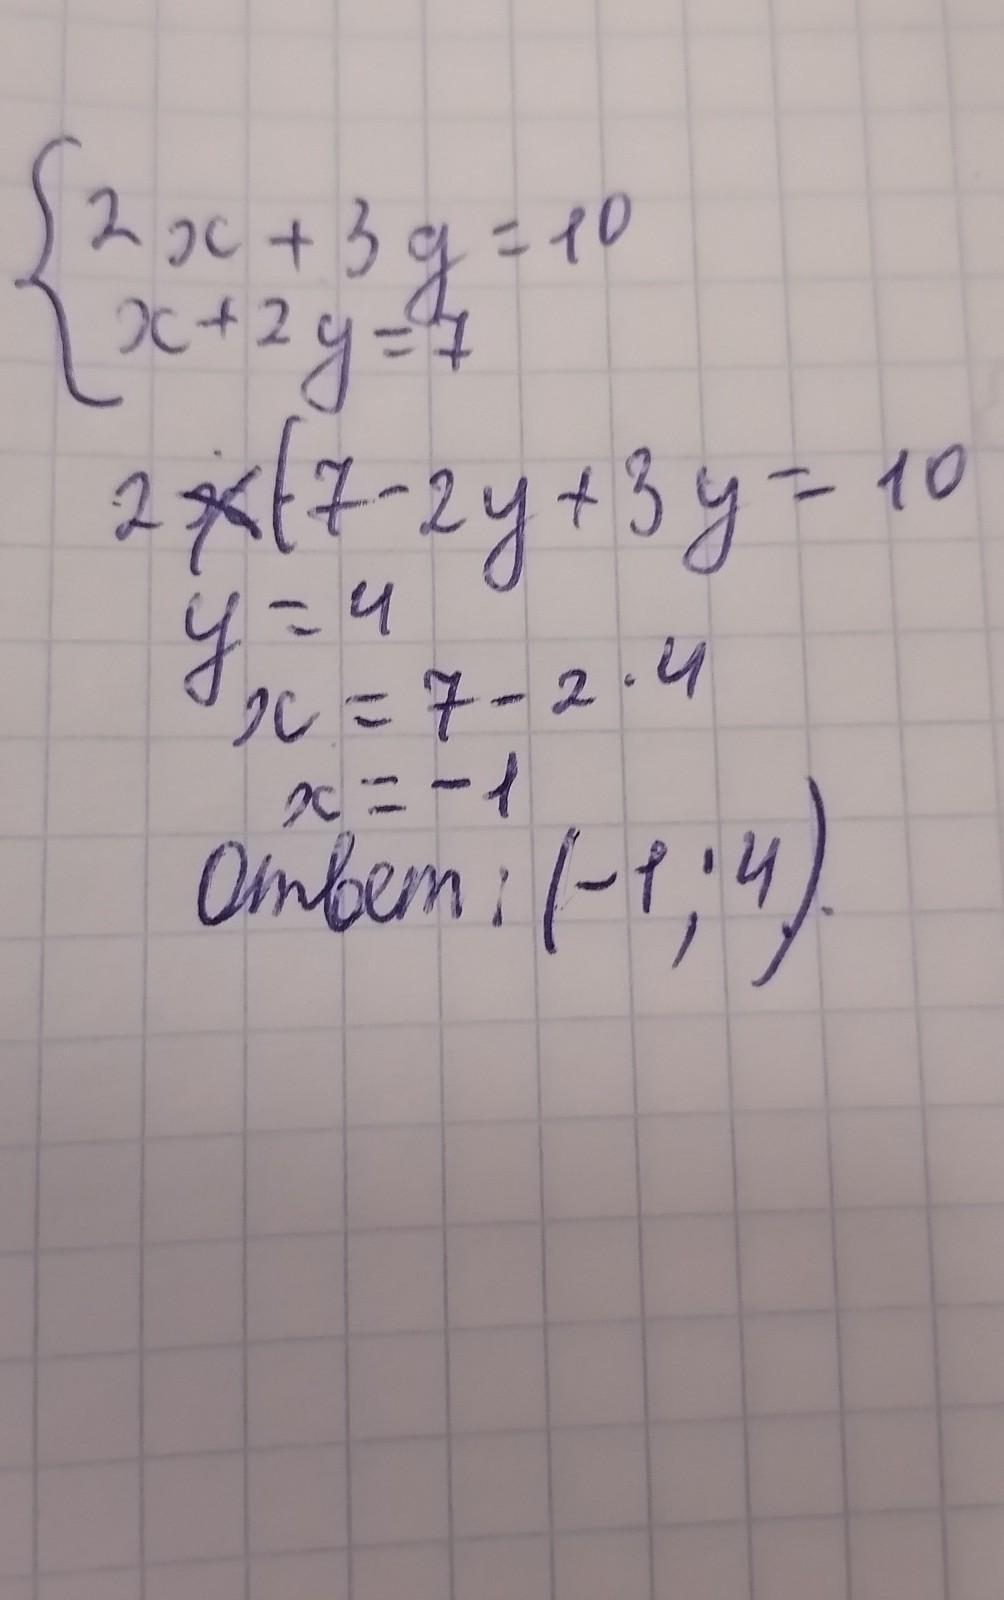 {2x + 3y = 10
x + 2y = 7
2(7 - 2y + 3y = 10
y = 4
x = 7 - 2 · 4
x = -1
Ответ: (-1; 4).